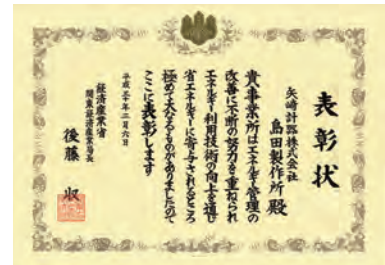 表彰状
矢崎計器株式会社
島田製作所殿
貴事業所はエネルギー管理の
改善に不断の努力を重ねられ
エネルギー利用技術の向上を通じ
省エネルギーに寄与されるところ
極めて大なるものがありましたので
ここに表彰します
平成三十年二月六日
経済産業省
関東経済産業局長
後藤 収